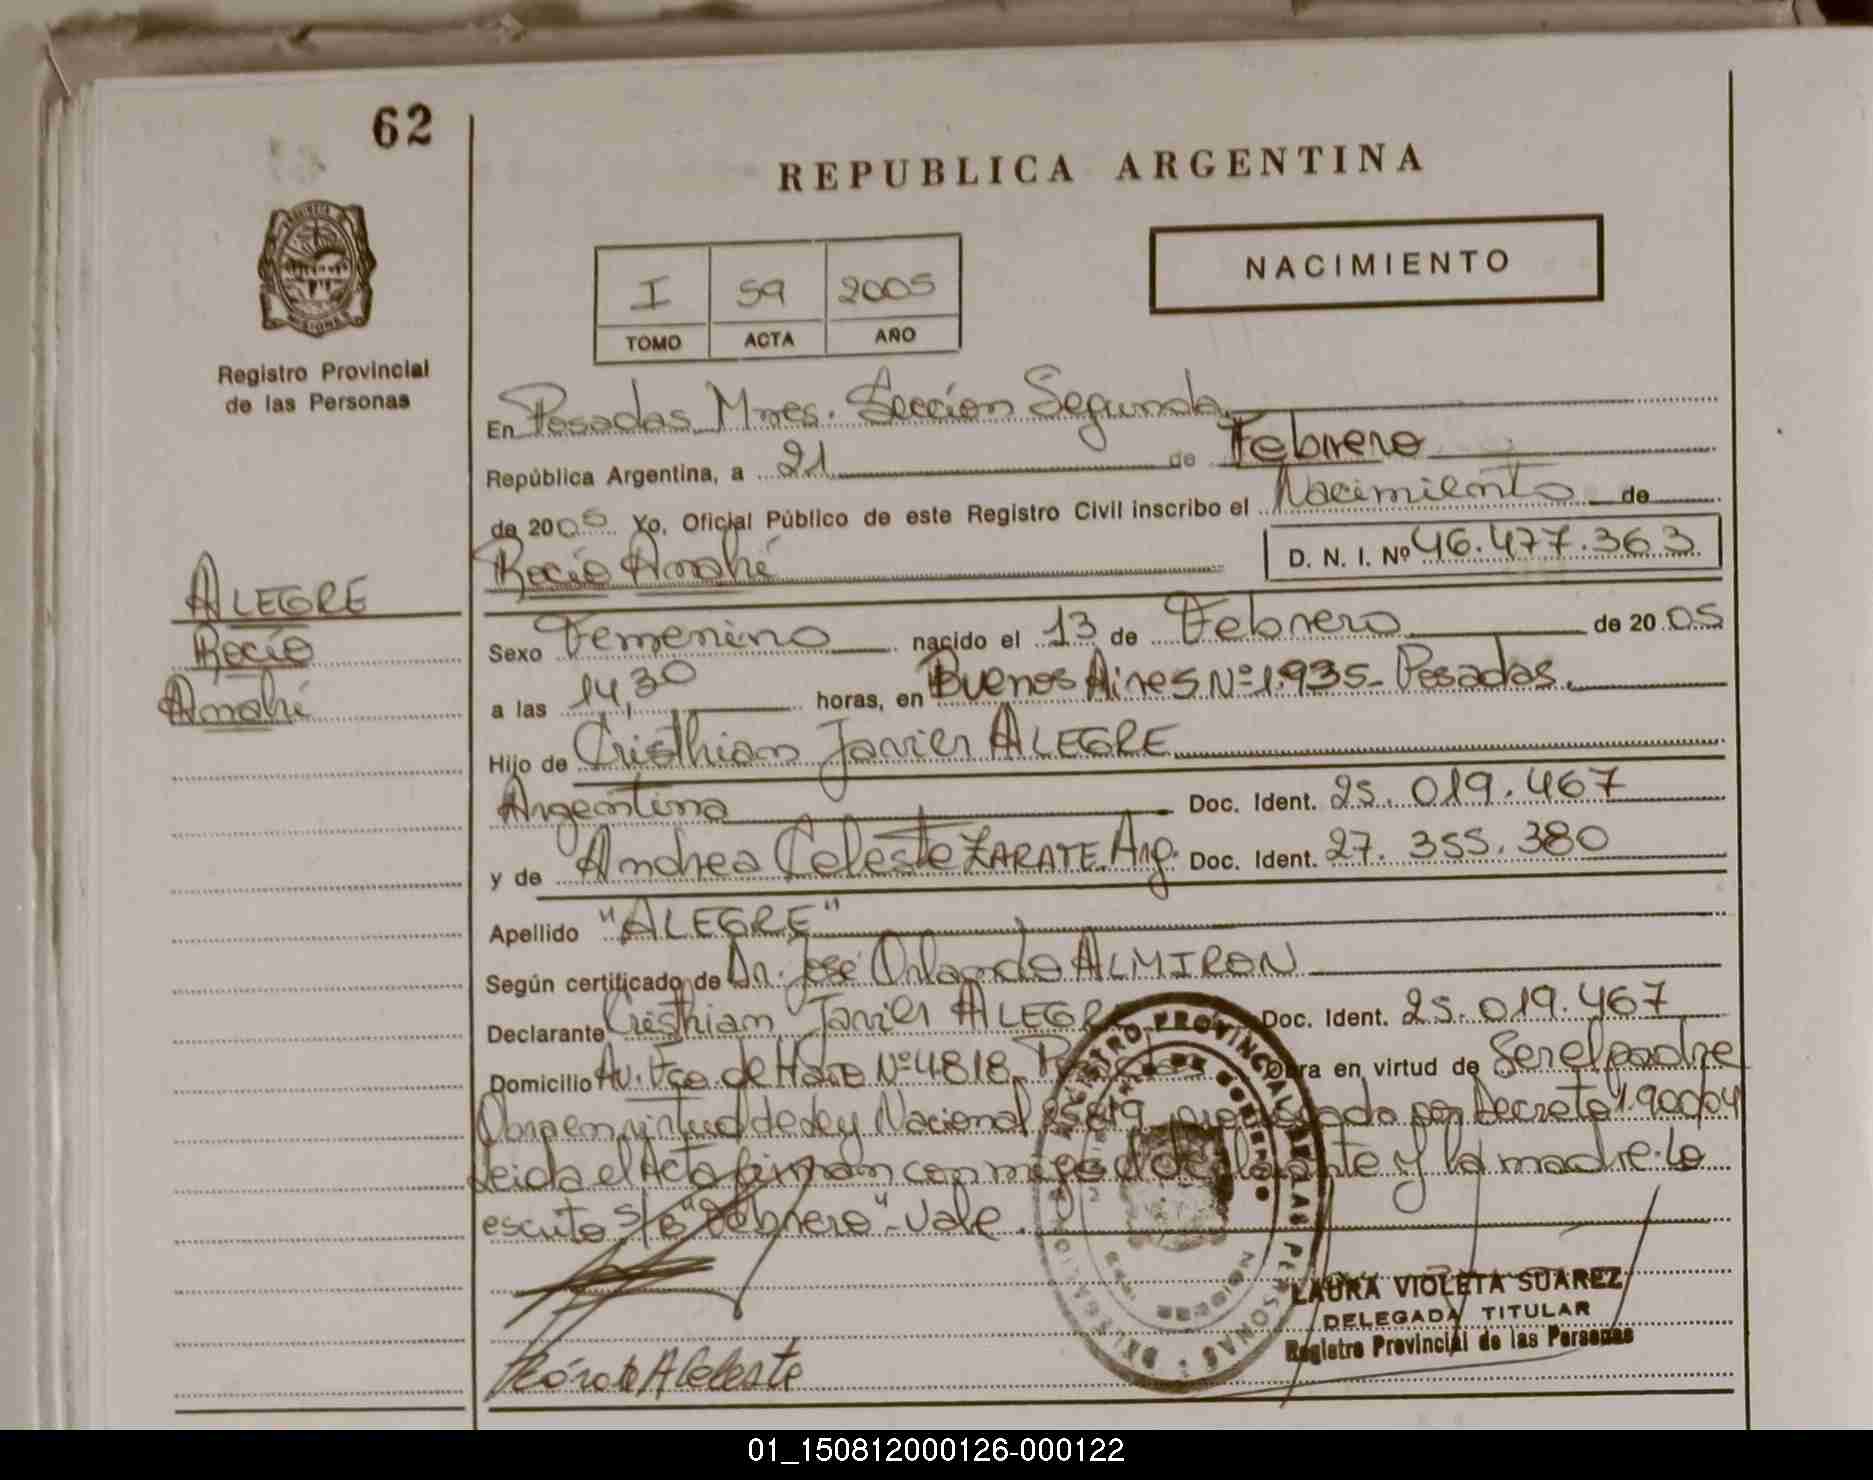 62
REPUBLICA ARGENTINA
NACIMIENTO
I 59 2005
TOMO ACTA AÑO
Registro Provincial
de las Personas
En Posadas Mnes. Sección Segunda
República Argentina, a 21 de Febrero
de 2005 Yo, Oficial Público de este Registro Civil inscribo el Nacimiento de
Rocío Anahí D. N. I. Nº 46.477.363
ALEGRE
Rocío
Anahí
Sexo Femenino nacido el 13 de Febrero de 2005
a las 14,30 horas, en Buenos Aires Nº 1.935- Posadas.
Hijo de Cristhian Javier ALEGRE
Argentina Doc. Ident. 25.019.467
y de Andrea Celeste ZARATE. Arg. Doc. Ident. 27.355.380
Apellido "ALEGRE"
Según certificado de Dr. José Orlando ALMIRON
Declarante Cristhian Javier ALEGRE Doc. Ident. 25.019.467
Domicilio Av. Fco. de Haro Nº 4818. Posadas Obra en virtud de Ser el padre
Obra en virtud de Ley Nacional 25819, prorrogada por Decreto 1.900/04
Leida el Acta firman conmigo el declarante y la madre. Lo
escrito S/B "Febrero" - Vale.
REGISTRO PROVINCIAL DE LAS PERSONAS
LAURA VIOLETA SUAREZ
DELEGADA TITULAR
Registro Provincial de las Personas
Zárate A Celeste
01_150812000126-000122